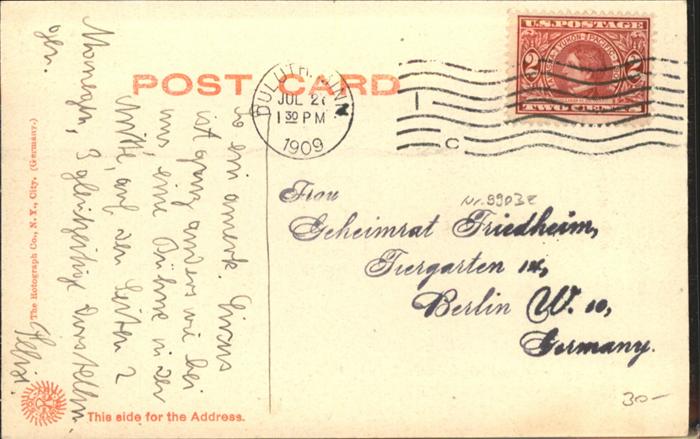 POST CARD
U.S. POSTAGE
ALASKA-YUKON-PACIFIC
2 2
TWO CENTS
DULUTH, MINN
JUL 27
1 30 PM
1909
C
So ein amerik. Circus
ist ganz anders wie bei
uns eine Bühne in der
Mitte, auf den Seiten 2
Manegen, 3 gleichzeitige Vorstellun-
gen.
Felix.
Frau
Nr. 9903
Geheimrat Friedheim,
Tiergarten
Berlin W. 10,
Germany.
30-
The Rotograph Co., N. Y., City. (Germany.)
This side for the Address.